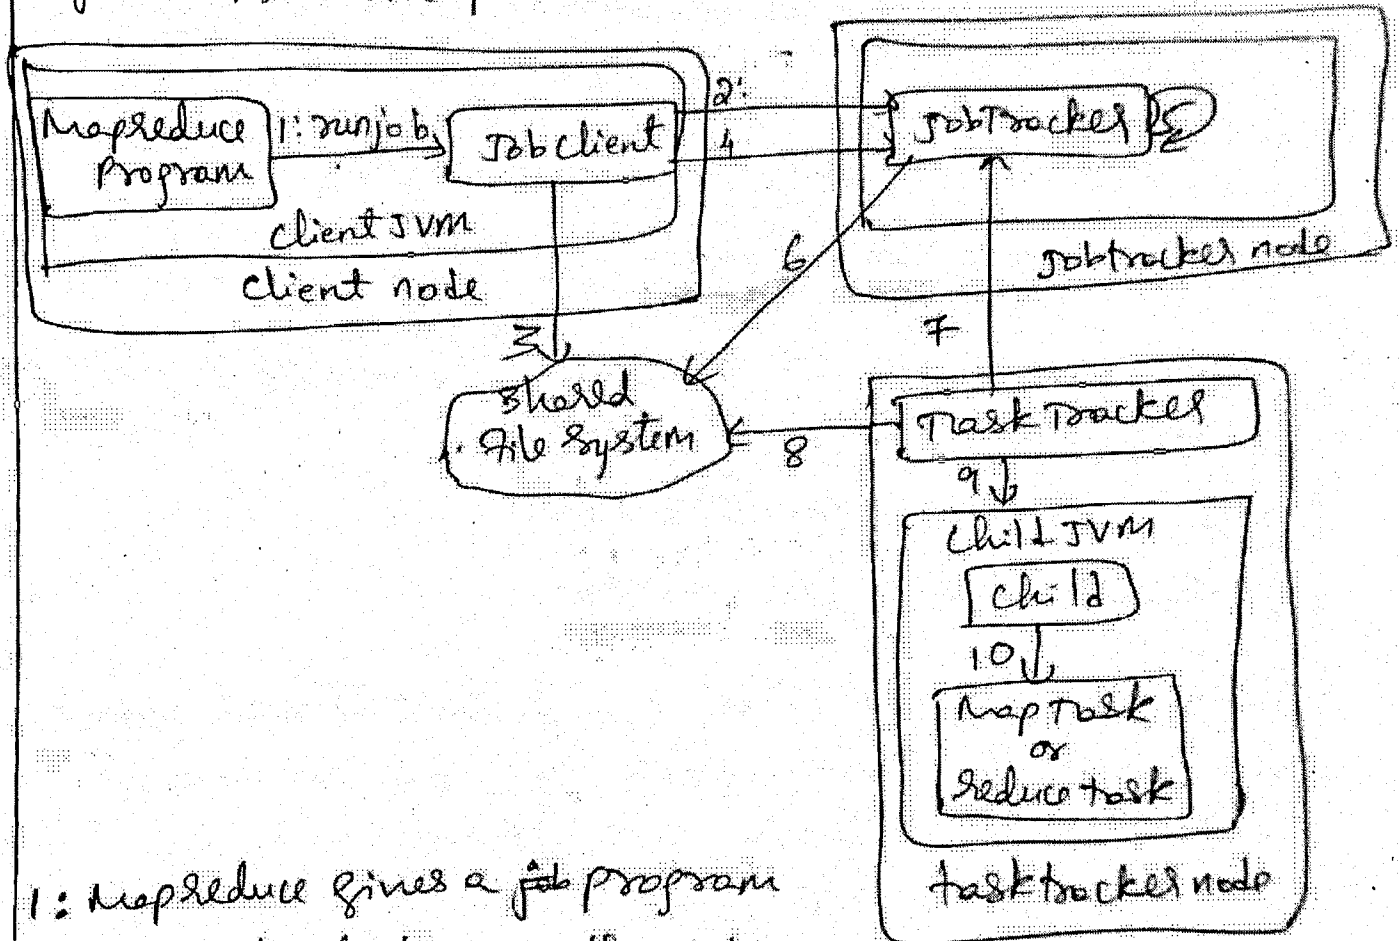 Mapreduce
Program
1: runjob
Job Client
2:
4
JobTracker
5
client JVM
client node
6
jobtracker node
3
7
shared
file system
8
Task Tracker
9
child JVM
child
10
Map Task
or
reduce task
tasktracker node
1: Mapreduce gives a job program